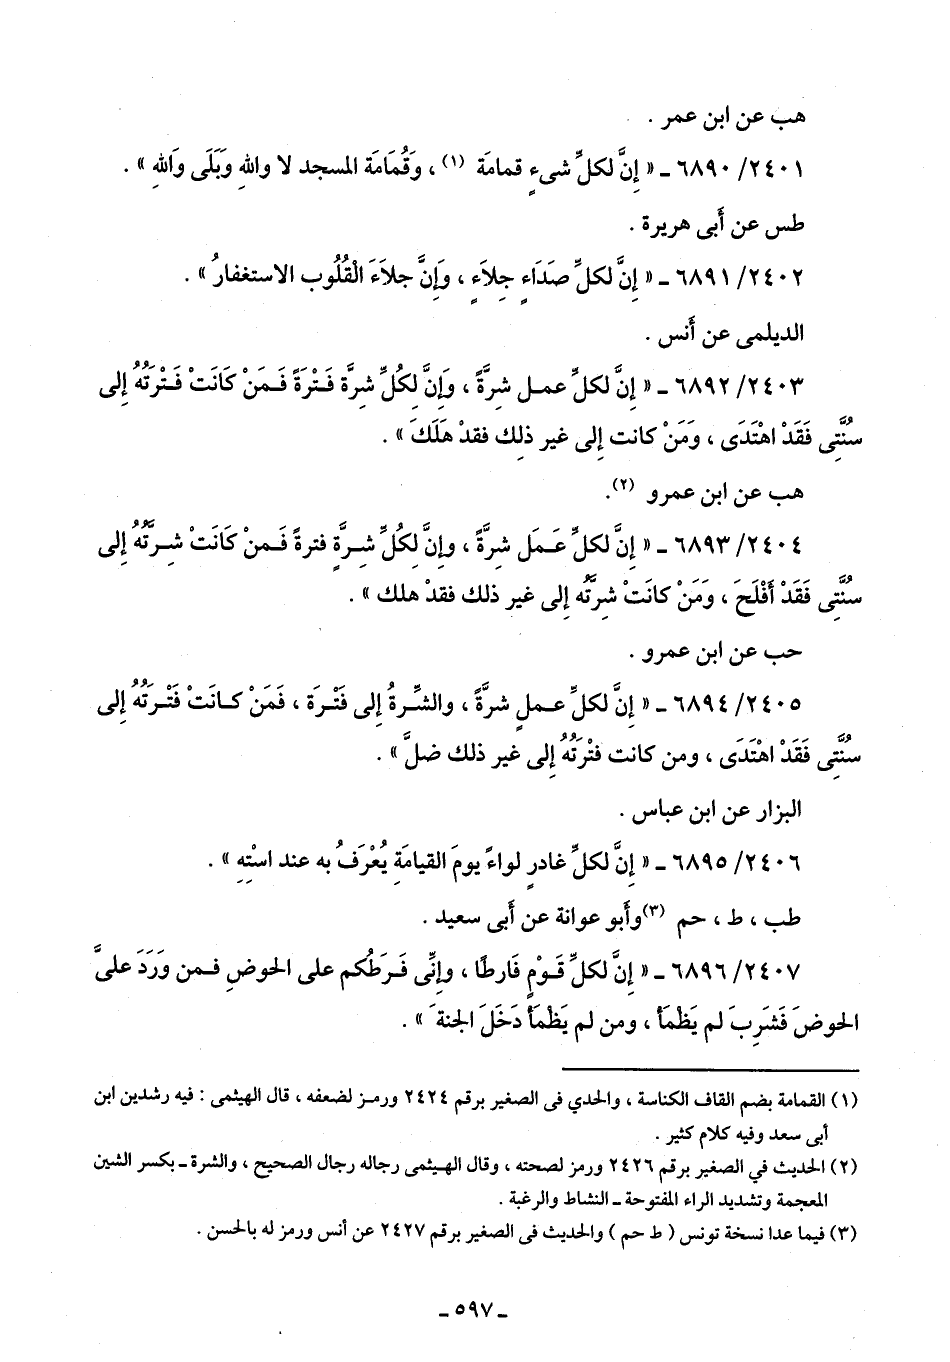 هب عن ابن عمر .
٦٨٩٠/٢٤٠١ ـ « إِنَّ لكلِّ شىءٍ قمامَة (١) ، وَقُمَامَة المسجد لا واللهِ وَبَلَى وَاللهِ » .
طس عن أَبى هريرة .
٦٨٩١/٢٤٠٢ ـ « إِنَّ لكلِّ صَدَاءٍ جِلاَءٍ ، وَإِنَّ جلاَءَ الْقُلُوب الاستغفارُ » .
الديلمى عن أَنس .
٦٨٩٢/٢٤٠٣ ـ « إِنَّ لكلِّ عمـل شرَّةً ، وَإِنَّ لِكُلِّ شرِة فَـتْرَةً فَـمَنْ كَانَتْ فَـتْرَتُهُ إلى
سُنَّتِى فَقَدْ اهْتَدَى ، وَمَنْ كانت إلى غير ذلِك فقدْ هَلَكَ » .
هب عن ابن عمرو (٢).
٦٨٩٣/٢٤٠٤ ـ « إِنَّ لكلِّ عَـمَل شرَّةً ، وَإِنَّ لِكُلِّ شِـرَّةٍ فترةً فَـمنْ كَانَتْ شِـرَّتُهُ إلى
سُنَّتِى فَقَدْ أَفْلَحَ ، وَمَنْ كانَتْ شرتُه إلى غير ذلك فقدْ هلك » .
حب عن ابن عمرو .
٦٨٩٤/٢٤٠٥ ـ « إِنَّ لكلِّ عـملٍ شرةً ، والشِّرةُ إلى فَتْـرَة ، فَمَنْ كـانَتْ فَتْـرَتُهُ إلى
سُنَّتِى فَقَدْ اهْتَدَى ، ومن كانت فتْرتُهُ إلى غير ذلك ضلَّ » .
البزار عن ابن عباس .
٦٨٩٥/٢٤٠٦ ـ « إِنَّ لكلِّ غادرٍ لواءً يومَ القيامَةِ يُعْرَفُ به عند استِهِ » .
طب ، ط ، حم (٣)وأَبو عوانة عن أَبى سعيد .
٦٨٩٦/٢٤٠٧ ـ « إِنَّ لكلِّ قَـوْمٍ فَارطًا ، وإِنِّى فَـرَطُكم على الحوضِ فـمن وَرَدَ علىَّ
الحوضَ فَشَرِبَ لم يَظْمَأْ ، ومن لم يَظْمَأْ دَخَلَ الجنةَ » .
(١) القمامة بضم القاف الكناسة ، والحدي فى الصغير برقم ٢٤٢٤ ورمـز لضعفه ، قال الهيثمى : فيه رشدين ابن
أبى سعد وفيه كلام كثير .
(٢) الحديث في الصغير برقم ٢٤٢٦ ورمز لصحته ، وقال الهـيثمى رجاله رجال الصحيح ، والشرة ـ بكسر الشين
المعجمة وتشديد الراء المفتوحة ـ النشاط والرغبة .
(٣) فيما عدا نسخة تونس ( ط حم ) والحديث فى الصغير برقم ٢٤٢٧ عن أنس ورمز له بالحسن .
ـ ٥٩٧ ـ